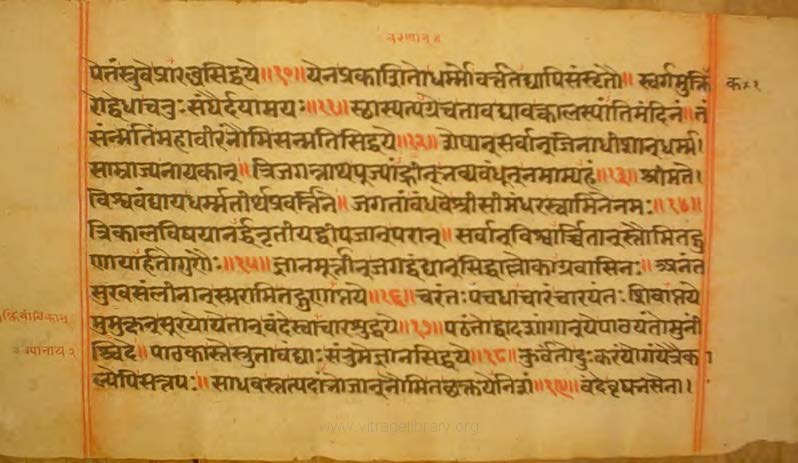 चरणान्॥
पेतंस्तुवेप्रारब्धसिद्धये॥१०॥येनप्रकाशितोधर्म्मोवर्त्ततेद्यापिसंसृतौ॥स्वर्गमुक्ति
रोद्वेधाचतुःसंघैर्दयामयः॥११॥
सन्मतिंमहावीरंनौमिसन्मतिसिद्धये॥१२॥शेषान्सर्वान्जिनाधीशान्धर्म्म।
साम्राज्यनायकान्॥त्रिजगन्नाथपूज्यांह्रीन्नव्यबंधून्नमाम्यहं॥१३॥श्रीमते।
विश्ववंद्यायधर्म्मतीर्थप्रवर्त्तिने॥जगतांबंधवेश्रीसीमंधरस्वामिनेनमः॥१४॥
त्रिकालविषयानर्द्धतृतीयद्वीपजान्परान्॥सर्वान्विश्वार्च्चितान्स्तौमितद्गु
णायार्हतोगुरोः॥१५॥ज्ञानमूर्त्तीन्जगद्वंद्यान्सिद्धाल्लोकाग्रवासिनः॥अनंत
सुखसंलीनान्स्मरामितद्गुणाप्तये॥१६॥चरंतःपंचधाचारंचारयंतःशिवाप्तये
मुमुक्षून्सूरयोयेतान्वंदेस्वाचारशुद्धये॥१७॥पठंतोद्वादशांगान्येपाठयंतोमुनी
श्चिदे॥पाठकास्तेस्तुतावंद्याःसंतुमज्ञानसिद्धये॥१८॥कुर्वतोदुःकरंयोगंयेत्रैका
ल्येपिसत्तपः॥साधवस्तत्पदां १९॥वंदेवृषभसेना।
www.vitragelibrary.org